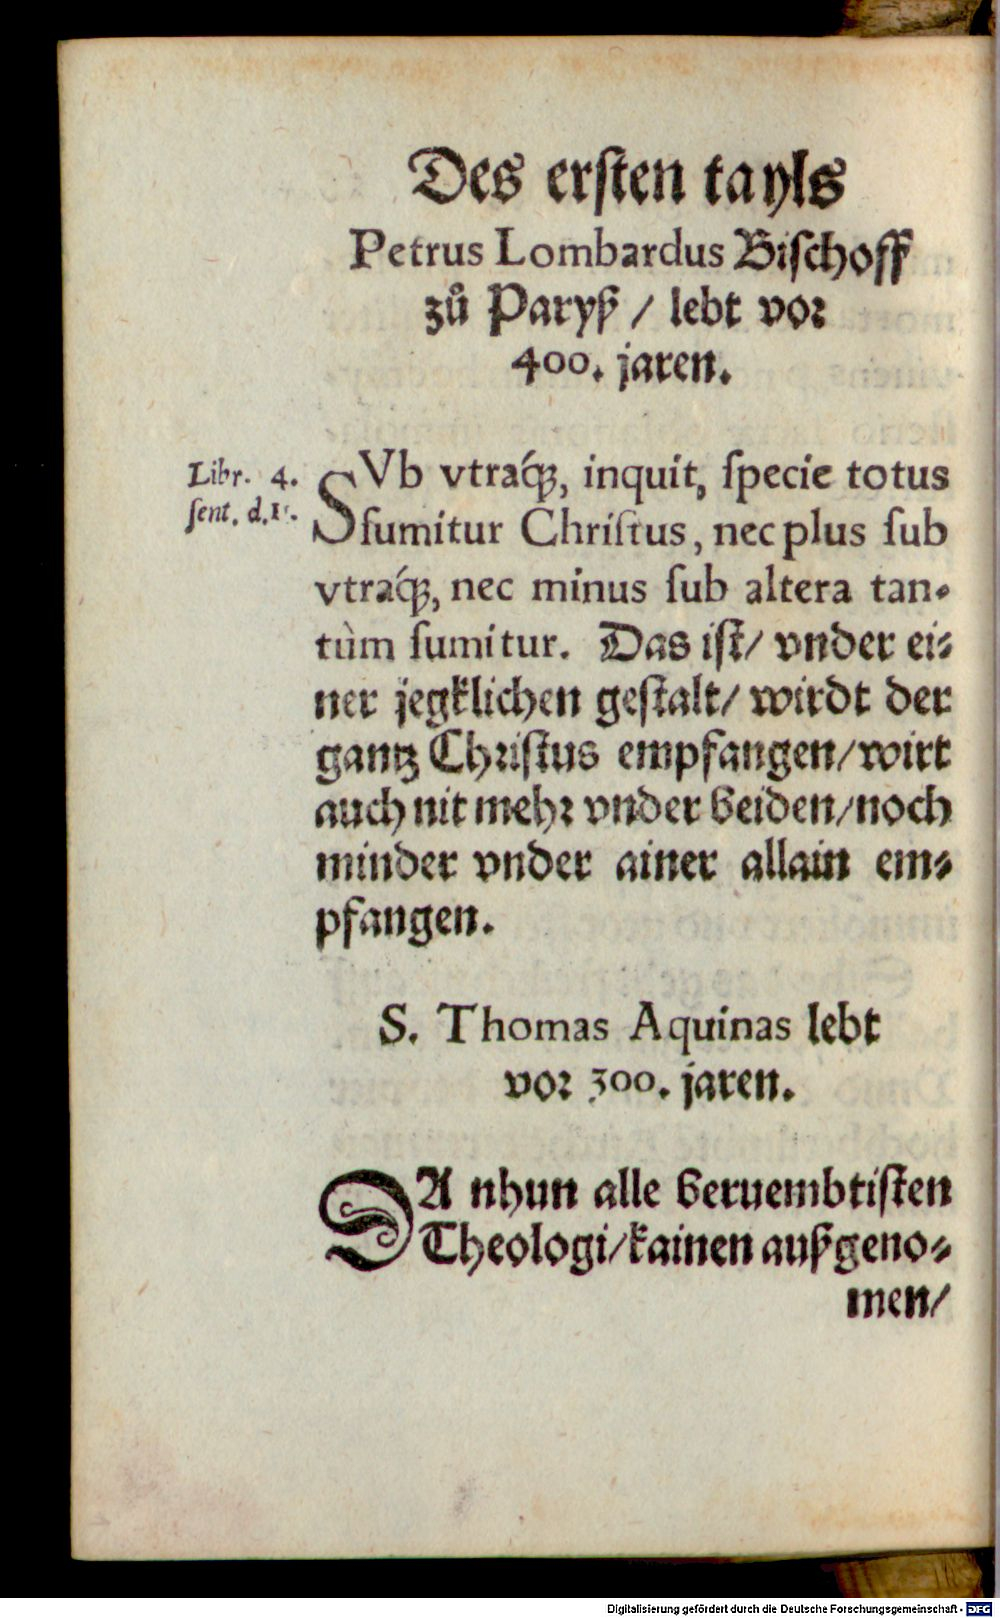 Des ersten tayls
Petrus Lombardus Bischoff
zů Paryß / lebt vor
400. jaren.
Libr. 4.
sent. d.
SVb vtraq́;, inquit, specie totus
sumitur Christus, nec plus sub
vtraq́;, nec minus sub altera tan-
tùm sumitur. Das ist/ vnder ei-
ner jegklichen gestalt/ wirdt der
gantz Christus empfangen/wirt
auch nit mehr vnder beiden/noch
minder vnder ainer allain em-
pfangen.
S. Thomas Aquinas lebt
vor 300. jaren.
DA nhun alle beruembtisten
Theologi/kainen außgeno-
men/
Digitalisierung gefördert durch die Deutsche Forschungsgemeinschaft - DFG